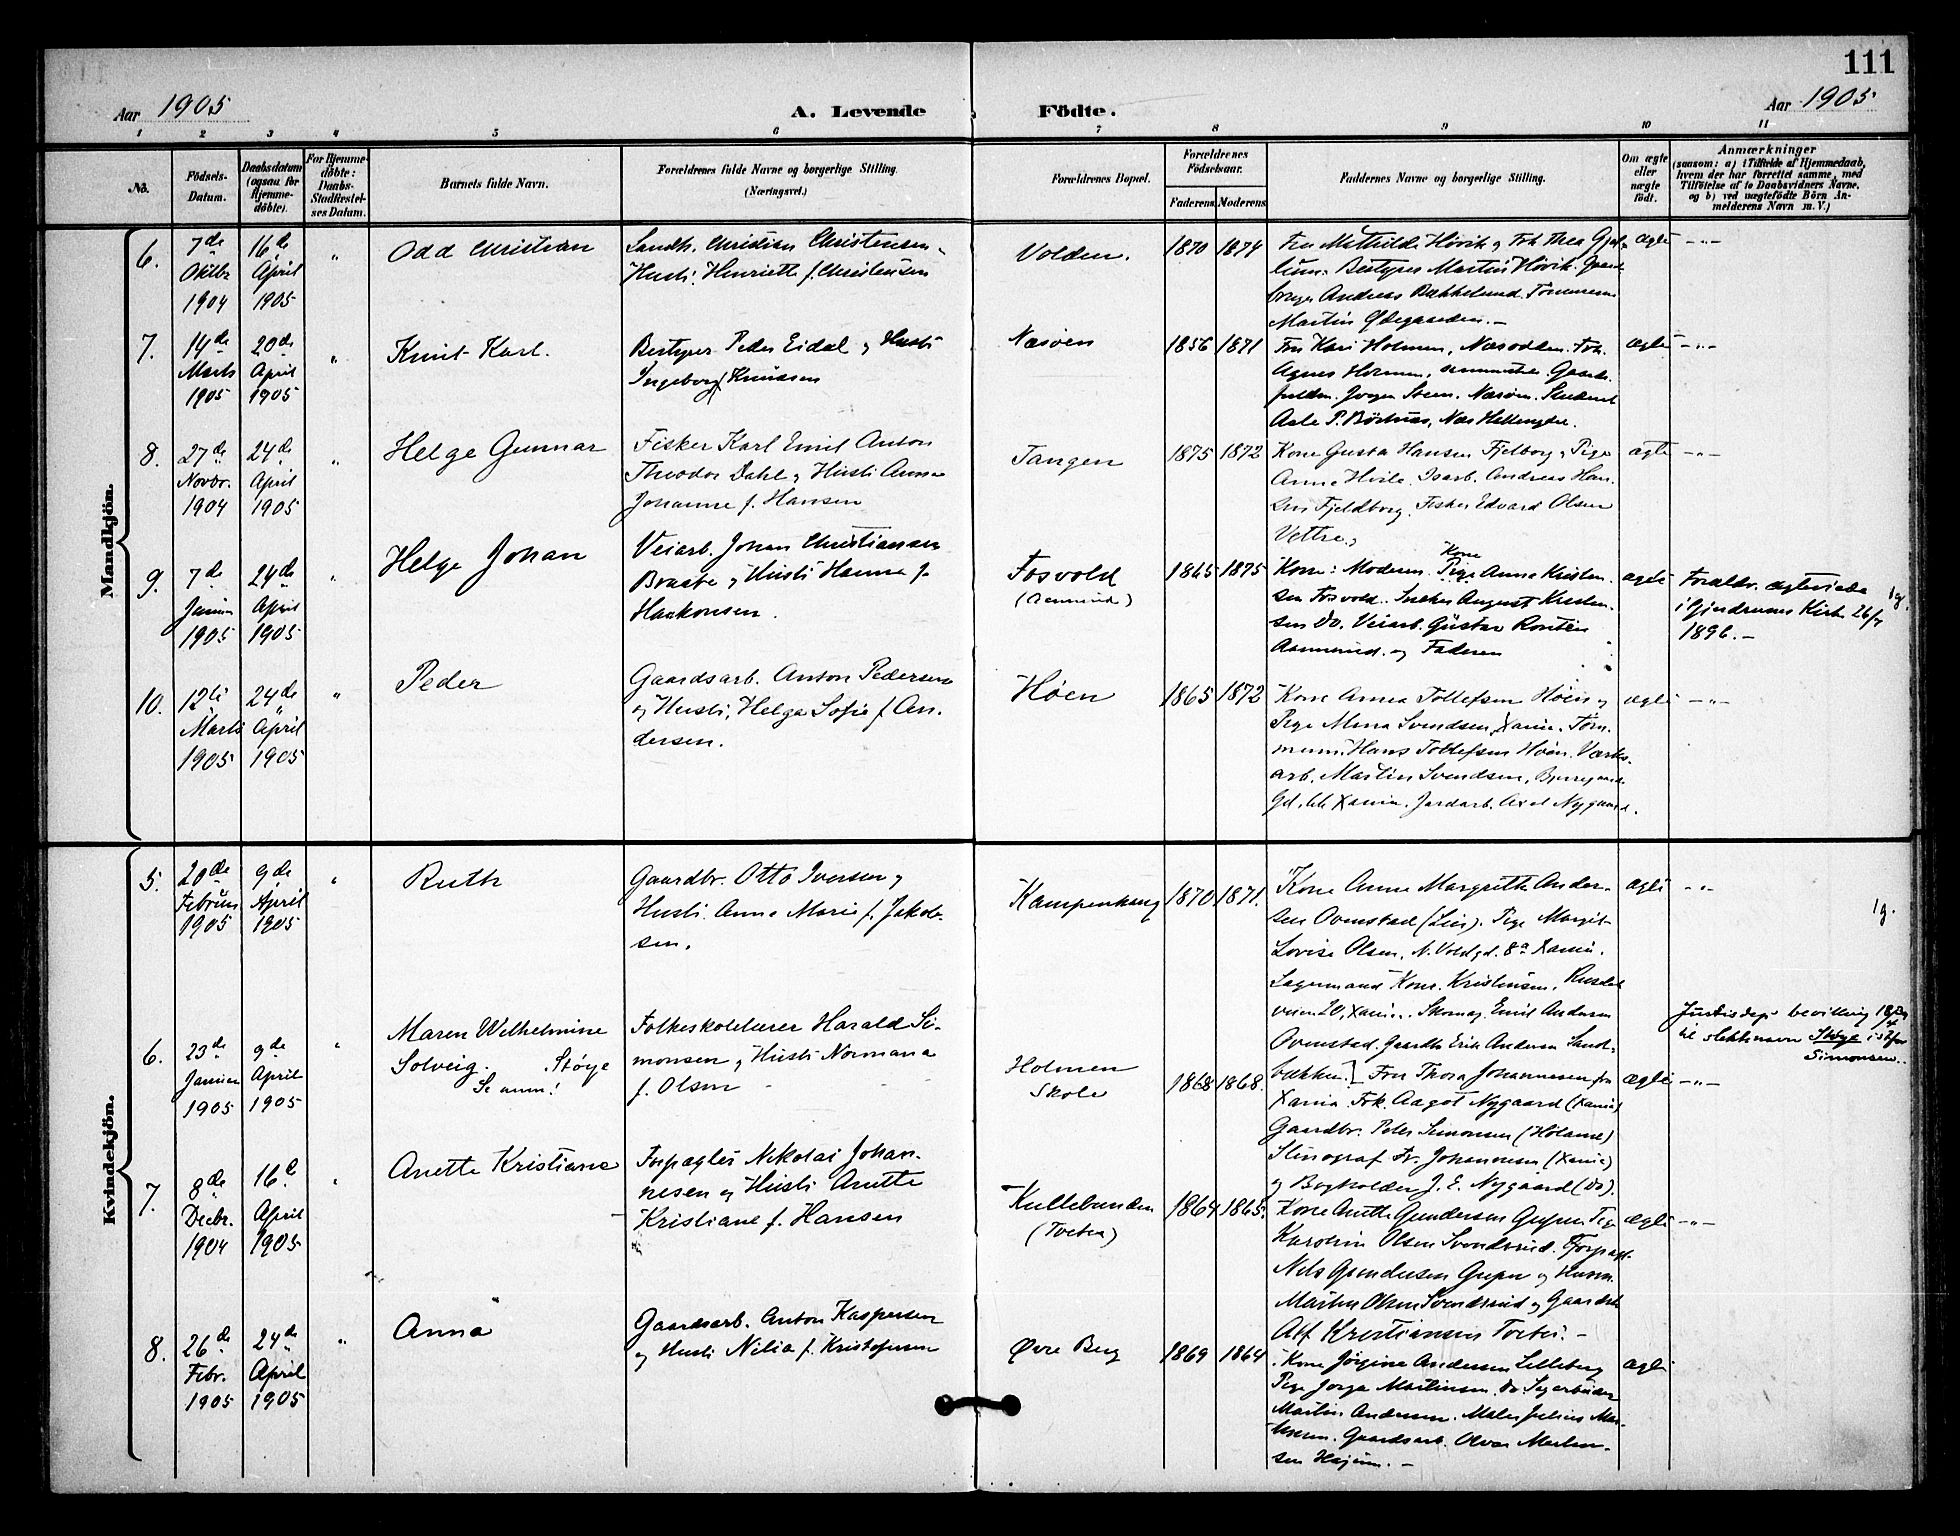 111
Aar 1905
A. Levende Födte.
Aar 1905
1 2 3 4 5 6 7 8 9 10 11
No.
Födsels-
Datum.
Daabsdatum
(ogsaa for
Hjemme-
döbte).
For Hjemme-
döbte:
Daabs-
Stadfæstel-
ses Datum.
Barnets fulde Navn.
Forældrenes fulde Navne og borgerlige Stilling.
(Næringsvei.)
Forældrenes Bopæl.
Forældrenes
Födselsaar.
Faderens. Moderens.
Faddernes Navne og borgerlige Stilling.
Om ægte
eller
uægte
født.
Anmærkninger
(saasom: a) i Tilfælde af Hjemmedaab,
hvem der har forrettet samme, med
Tilføielse af to Daabsvidners Navne,
og b) ved uægtefödte Börn An-
melderens Navn m. V.)
Mandkjön.
6.
7de
Oktbr
1904
16de
April
1905
"
Odd Christian
Landh. Christian Christensen
Husti: Henriette f. Christensen
Volden.
1870 1874
Fru Mathilde Hövik og Frk Thea
Bestyrer Martin Hövik. Gaard
bruger Andreas Bakkelund. Tömmerm.
Martin Ødegaarden.-
ægte
-"-
7.
14de
Marts
1905
20de
April
1905
"
Knut Karl.
Bestyrer Peder Eidal og Husti
Ingeborg f. Knudsen
Næsöen
1856 1871
Fru Kari Holmen, Næsodden. Frk.
Agnes Holmen, sammesteds. Gaards-
Jørgen Steen. Næsöen. Student
ægte
-"-
8.
27de
Novbr.
1904
24de
April
1905
"
Helge Gunnar
Fisker Karl Emil Anton
Theodor Dahl og Husti Anna
Johanne f. Hansen
Tangen
1875 1872
Kone Gusta Hansen Fjelborg, Pige
Anna Hvile. Isarb. Andreas Han-
sen Fjeldborg. Fisker Edvard Olsen
Vettre.
ægte
-"-
9.
7de
Januar
1905
24de
April
1905
"
Helge Johan
Veiarb. Johan Christiansen
Braate og Husti Hanna f.
Haakonsen.
Fosvold
1865 1875
Kone: Moderen. Kone
Pige Anna Kristen-
sen Fosvold. Snekker August Kristen-
sen Do. Veiarb. Gustav
Aamerud. og Faderen
ægte
Foreldr. ægteviede
i Gjerdrums Kirke 26/7
1896.-
ig.
10.
12te
Marts
1905
24de
April
1905
"
Peder
Gaardsarb. Anton Pedersen
og Husti, Helga Sofie f An-
dersen.
Höen
1865 1872
Kone Anna Tollefsen Höen og
Pige Mina Svendsen, Xania. Töm-
merm. Hans Tollefsen Höen. Værks-
arb. Martin Svendsen,
Xania. Jordarb. Axel Nygaard.
ægte
-"-
Kvindekjön.
5.
20de
Februar
1905
9de
April
1905
"
Ruth
Gaardbr. Otto Iversen og
Husti. Anna Marie f. Jakob-
sen.
Kampenhaug
1870. 1871.
Kone Anna Margrethe Ander-
sen Ovenstad (Lier). Pige Margit
Lovise Olsen, N. Voldgd. 8a Xania.
Lagermand Konr. Kristensen,
veien 20, Xania. Skomag. Emil Andersen
Ovenstad. Gaardbr. Erik Andersen Sand-
bakken.
ægte
-"-
ig.
6.
23de
Januar
1905
9de
April
1905
"
Maren Wilhelmine
Solveig. Störje
Se anm!
Folkeskolelærer Harald Si-
monsen og Husti Normana
f. Olsen
Holmen
Skole
1868 1868.
Fru Thora Johannesen fra
Xania. Frk. Aagot Nygaard (Xania)
Gaardbr. Peter Simonsen (Holane)
Stenograf Fr. Johannesen (Xania)
og Bogholder J. E. Nygaard (Do).
ægte
-"-
Justisdeps bevilling
til slektsnavn Störje istfor
Simonsen.
7.
8de
Decbr.
1904
16de
April
1905
"
Anette Kristiane
Forpagter Nikolai Johan-
nesen og Husti Anette
Kristiane f. Hansen
Kullebunden
(Tveter)
1864 1865.
Kone Anette Gundersen Gupu Pige
Karoline Olsen Svendsrud. Forpagt.
Nels Gundersen Gupu og Husm.
Martin Olsen Svendsrud og Gaardsb.
Alf Kristiansen Tveter.-
ægte
-"-
8.
26de
Febr.
1905
24de
April
1905
"
Anna
Gaardsarb. Anton Kaspersen
og Husti Nilia f. Kristofersen
Øvre Berg
1869 1864
Kone Jørgine Andersen Lilleberg
Pige Jørga Martinsen. Do.
Martin Andersen. Maler Julius Mar-
tinsen. Gaardsarb. Olvar Martin-
sen
ægte